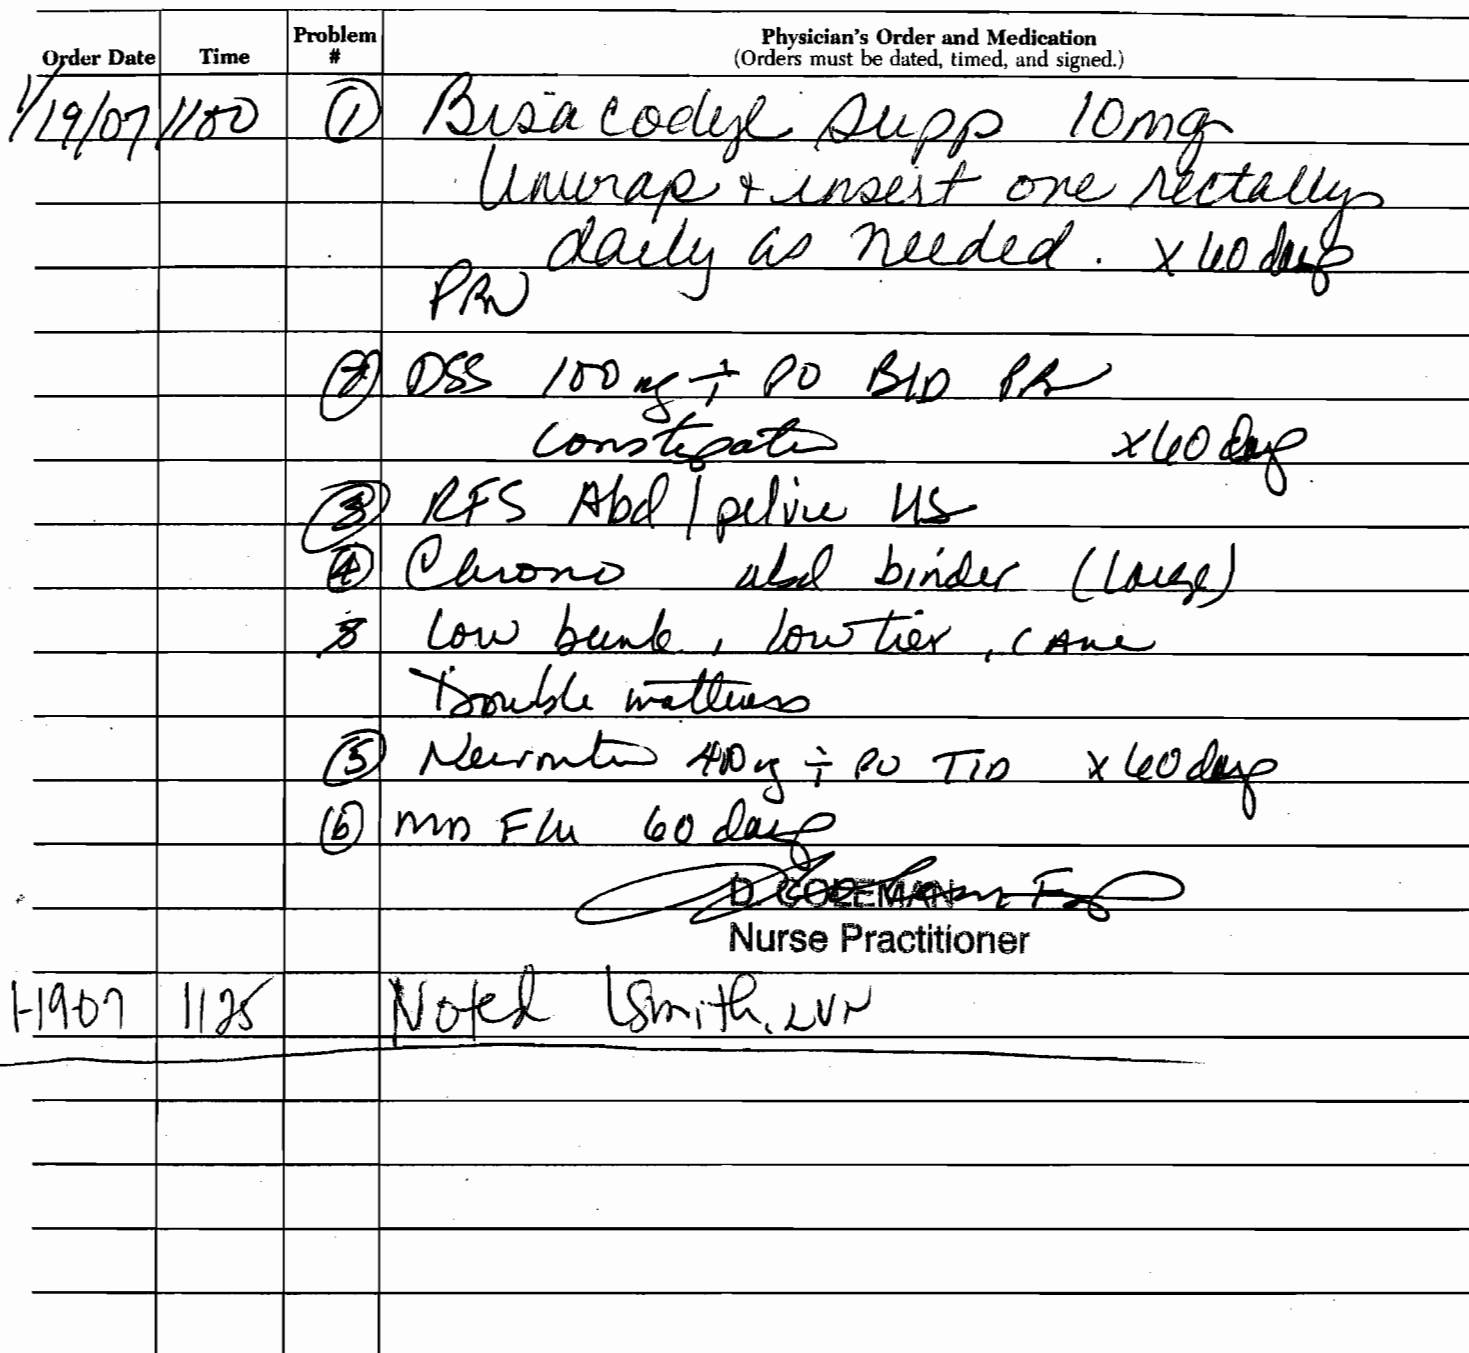 Order Date Time Problem # Physician's Order and Medication
(Orders must be dated, timed, and signed.)
1/19/07 1100 ① Bisacodyl supp 10mg
Unwrap + insert one rectally
daily as needed. x 60 days
PRN
② DSS 100 mg ṫ PO BID PRN
constipation x 60 days
③ RFS Abd / pelvic US
④ Chrono abd binder (large)
low bunk, low tier, cane
Double mattress
⑤ Neurontin 400 mg ṫ PO TID x 60 days
⑥ MD F/u 60 days
D. COLEMAN
Nurse Practitioner
1-19-07 1125 Noted LSmith, LVN